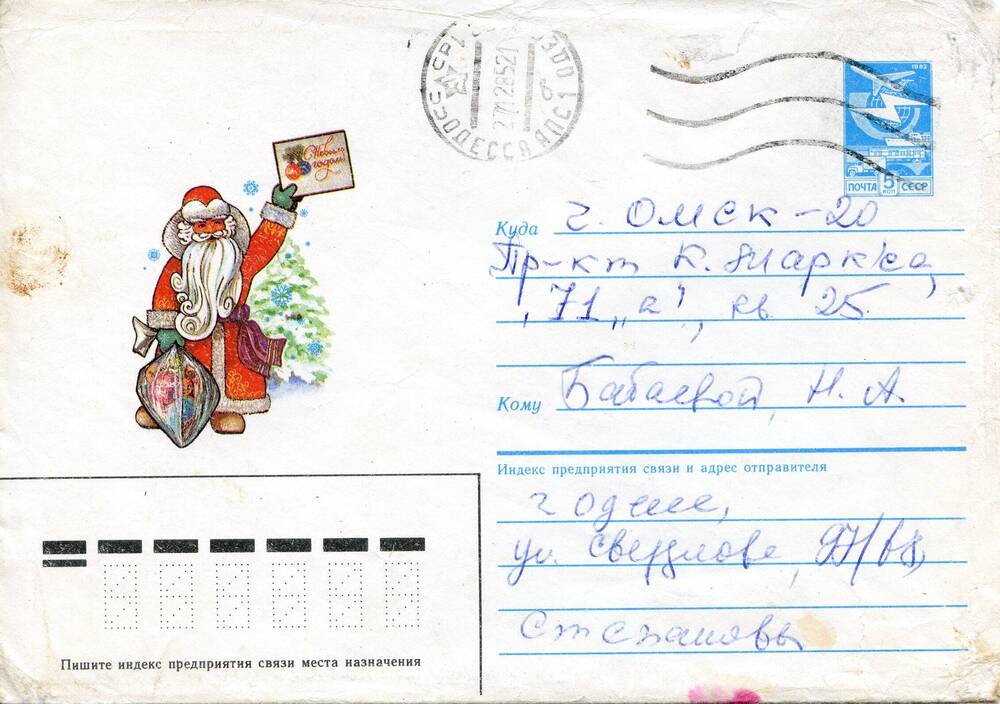 С Новым
годом!
ОДЕССА АПС 1
271285 21
1983
ПОЧТА 5 КОП СССР
Куда г. Омск-20
Пр-кт К. Маркса,
71 „а", кв 25.
Кому Бабаевой, Н. А.
Индекс предприятия связи и адрес отправителя
г Одесса,
ул. Свердлова, 97/
Степановы
Пишите индекс предприятия связи места назначения